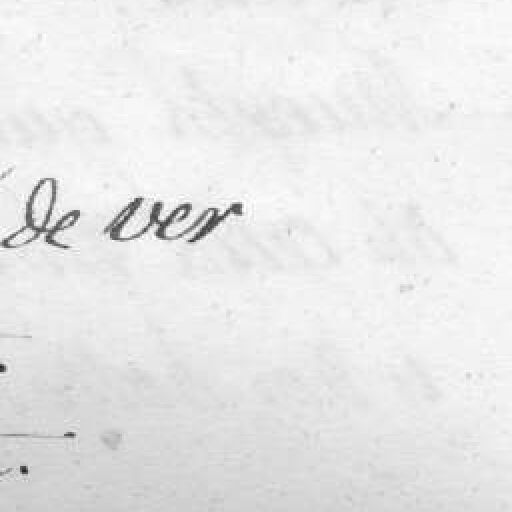 de ver